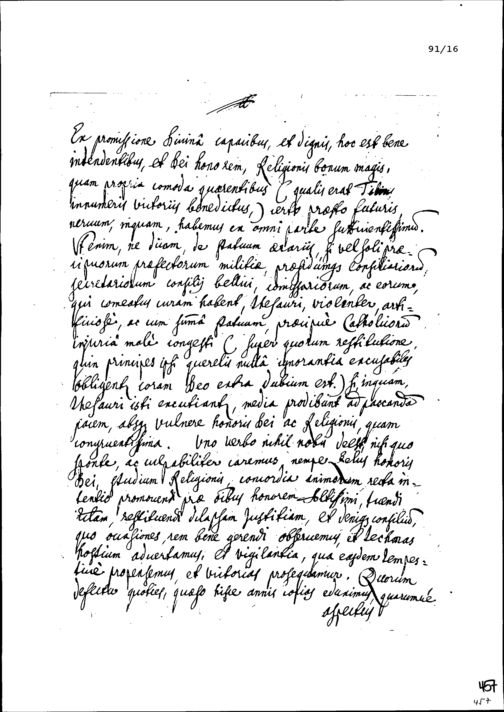 91/16
Ex promissione Divinâ capacibus, et dignis, hoc est bene
intendentibus, et Dei honorem, Religionis bonum magis,
quam propria comoda quaerentibus (qualis erat
innumeris victoriis benedictus,) certo praesto futuris,
nervum, inquam, habemus ex omni parte
Etenim, ne dicam, de statuum aerariis, si vel soli prae-
cipuorum praefectorum militiae, Consiliariorũ,
secretariorum consilij bellici, comissariorum, ac eorum,
qui comeatus curam habent, thesauri, violenter, arti-
ficiosè, ac cum sũmâ statuum, praecipuè Catholicorũ
injuriâ malè congesti (super quorum restitutione,
quin principes ipsi querelis nulla ignorantia excusabiles
coram Deo extra dubium est.) si inquam,
thesauri isti excutiant, media prodibunt ad
pacem, absq, vulnere honoris Dei ac Religionis, quam
congruentissima. Uno verbo nihil nobis deest, nisi quo
sponte, ac culpabiliter caremus, nempe Zelus honoris
Dei, studium Religionis, concordia animorum recta in-
tentio prae oĩbus honorem Altissimi, tuendi
restituendi dilapsam Justitiam, et deniq, consiliũ,
quo occasiones rem bene gerendi observemus, et
hostium advertamus, et vigilantia, qua easdem tempes-
tivè et victorias prosequamur. Quorum
defectus quoties, quaeso hisce annis copias eduximus, quarumvè
aspectus
457
457